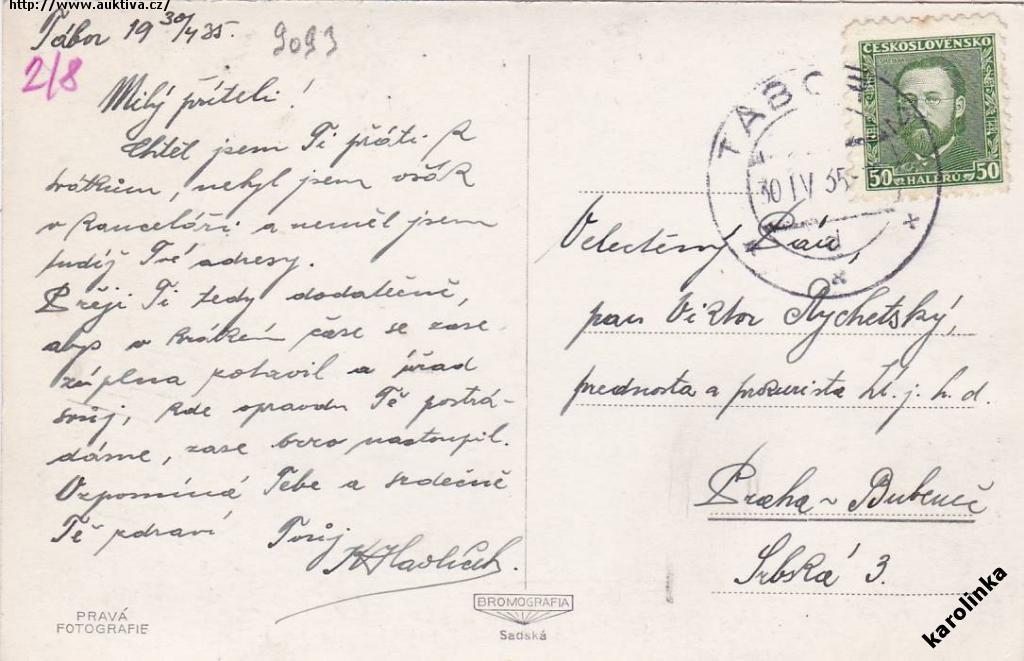 http://www.auktiva.cz/
Tábor 19 30/4 35.
9093
2/8
Milý příteli!
Chtěl jsem Ti přáti k
svátkům, nebyl jsem však
v kanceláři a neměl jsem
tudíž Tvé adresy.
Přeji Ti tedy dodatečně,
abys v krátkém čase se zase
zúplna potavil a úřad
svůj, kde opravdu Tě postrá-
dáme, zase brzo nastoupil.
Vzpomíná Tebe a srdečně
Tě zdraví Tvůj
KHavlíček.
PRAVÁ
FOTOGRAFIE
BROMOGRAFIA
Sadská
ČESKOSLOVENSKO
50 HALÉŘŮ 50
TÁBOR
30 IV 35
Velectěný Pan,
pan Viktor Rychetský,
přednosta a prokurista
Praha-Bubeneč
Srbská 3.
karolinka